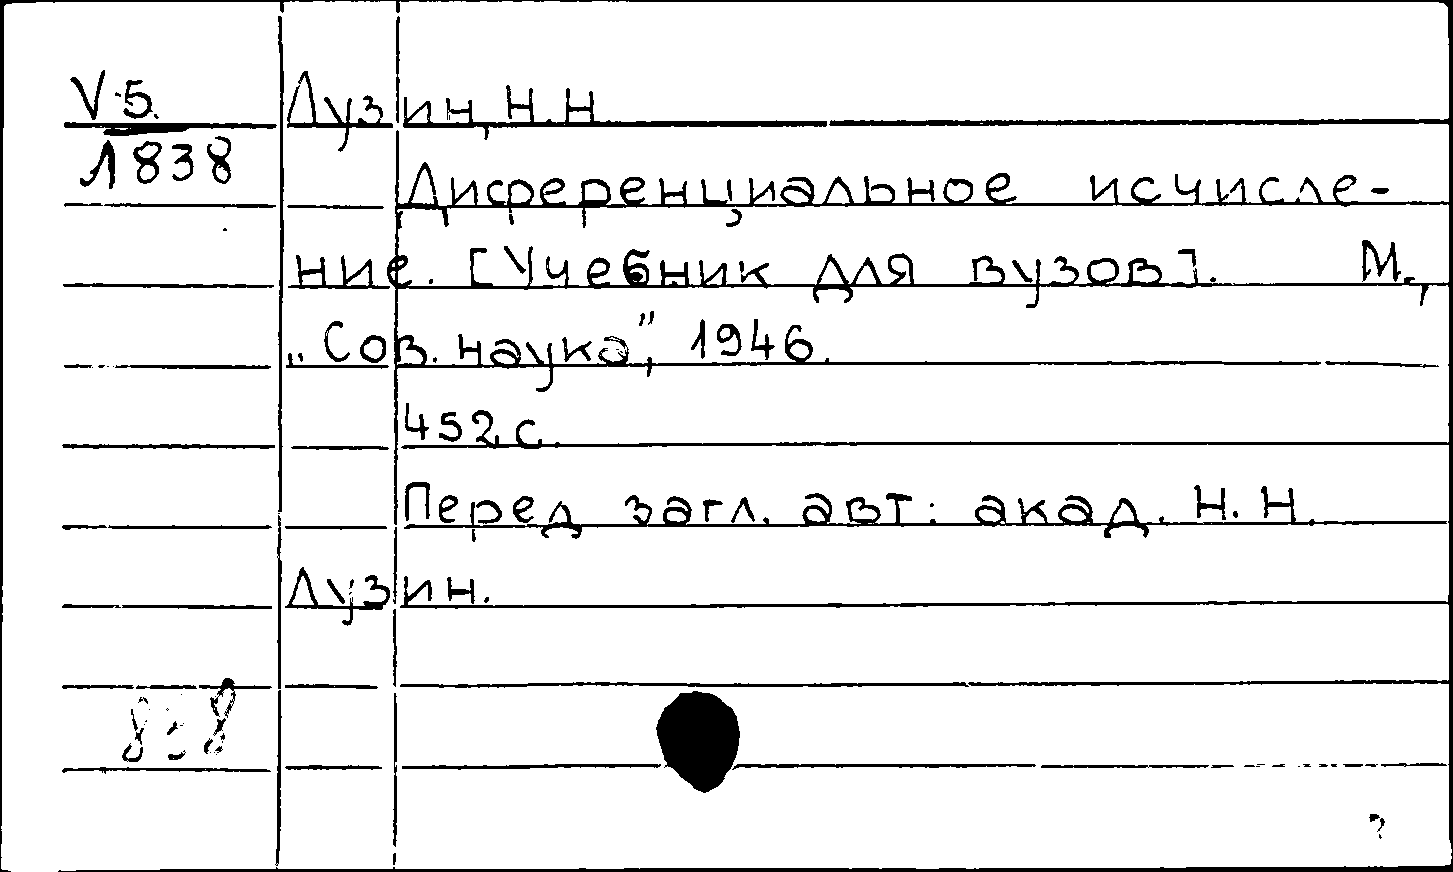 V 5.
1838
Лузин, Н.Н.
Диференциальное исчисле-
ние. [Учебник для вузов]. М.,
„Сов. наука”, 1946.
452 с.
Перед загл. авт: акад. Н. Н.
Лузин.
838